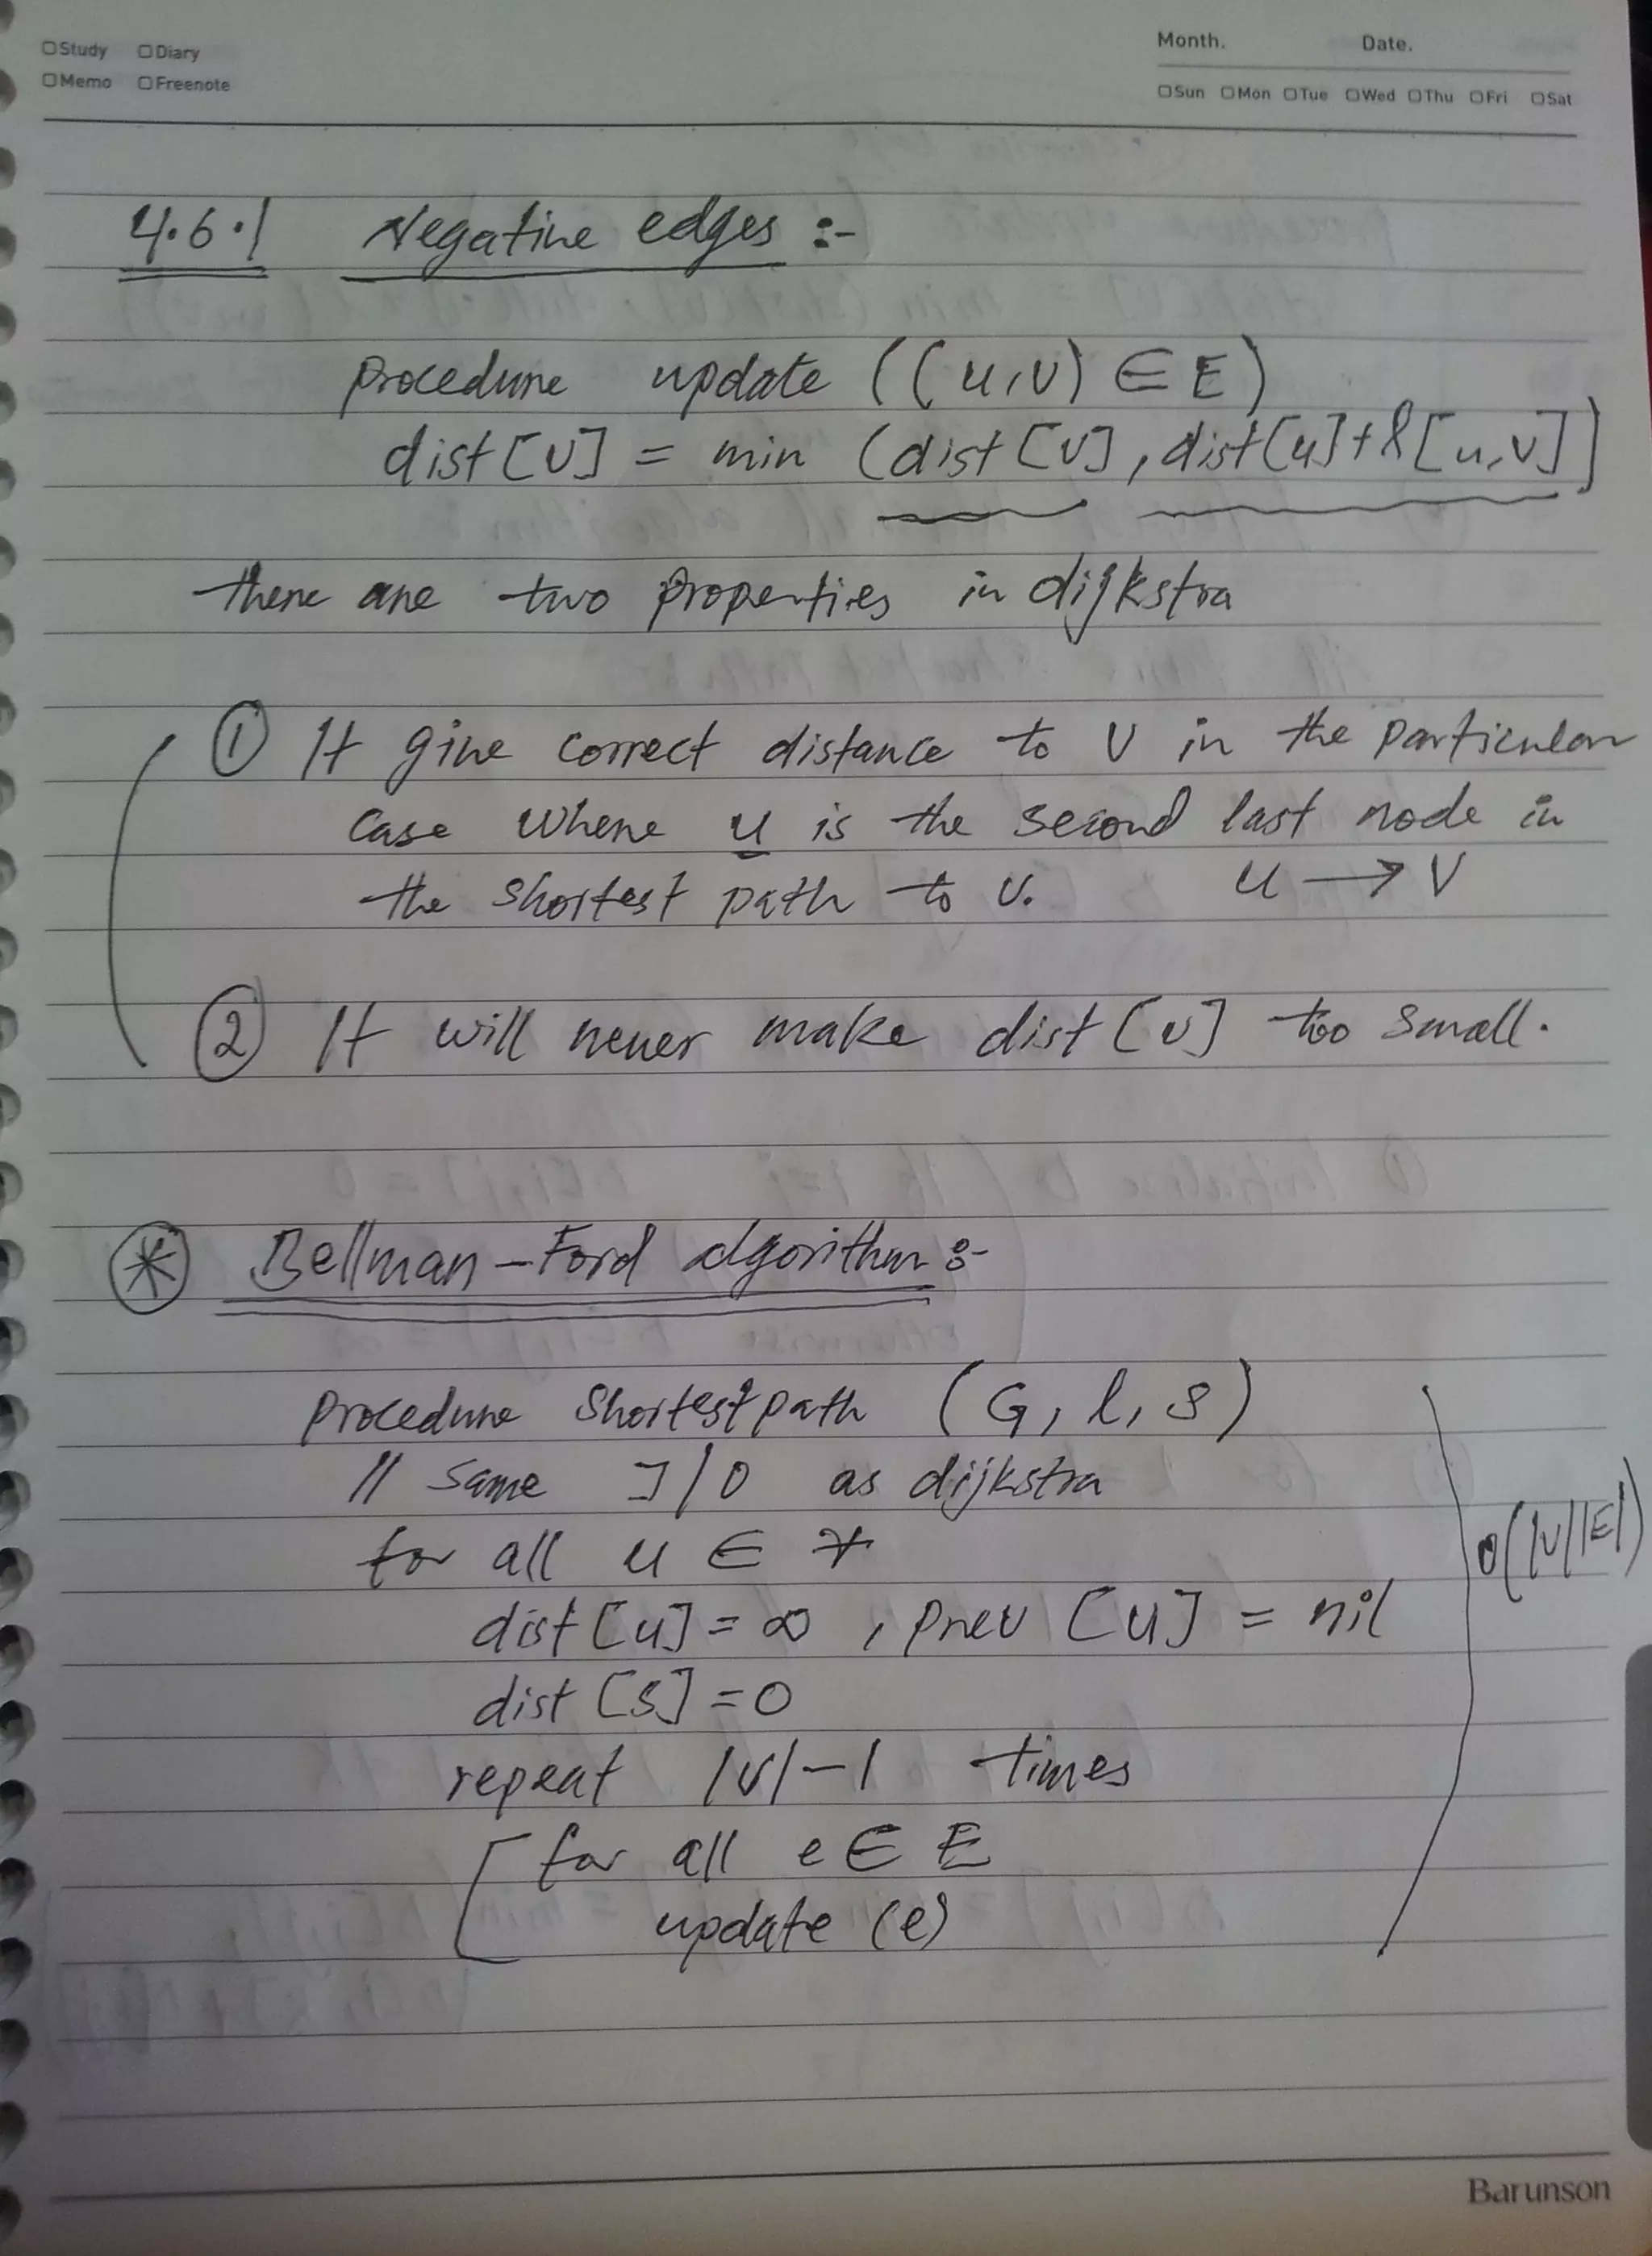 Study Diary
Memo Freenote
Month. Date.
Sun Mon Tue Wed Thu Fri Sat
4.6.1 Negative edges :-
procedure update ((u,v) ∈ E)
dist[v] = min (dist[v], dist[u]+l[u,v])
there are two properties in dijkstra
① It give correct distance to v in the particular
case where u is the second last node in
the shortest path to v. u → v
② It will never make dist[v] too small.
* Bellman-Ford algorithm :-
procedure shortestpath (G, l, s)
// same I/O as dijkstra
for all u ∈ V
dist[u] = ∞, prev[u] = nil
dist[s] = 0
repeat |v|-1 times
for all e ∈ E
update (e)
O(|V||E|)
Barunson